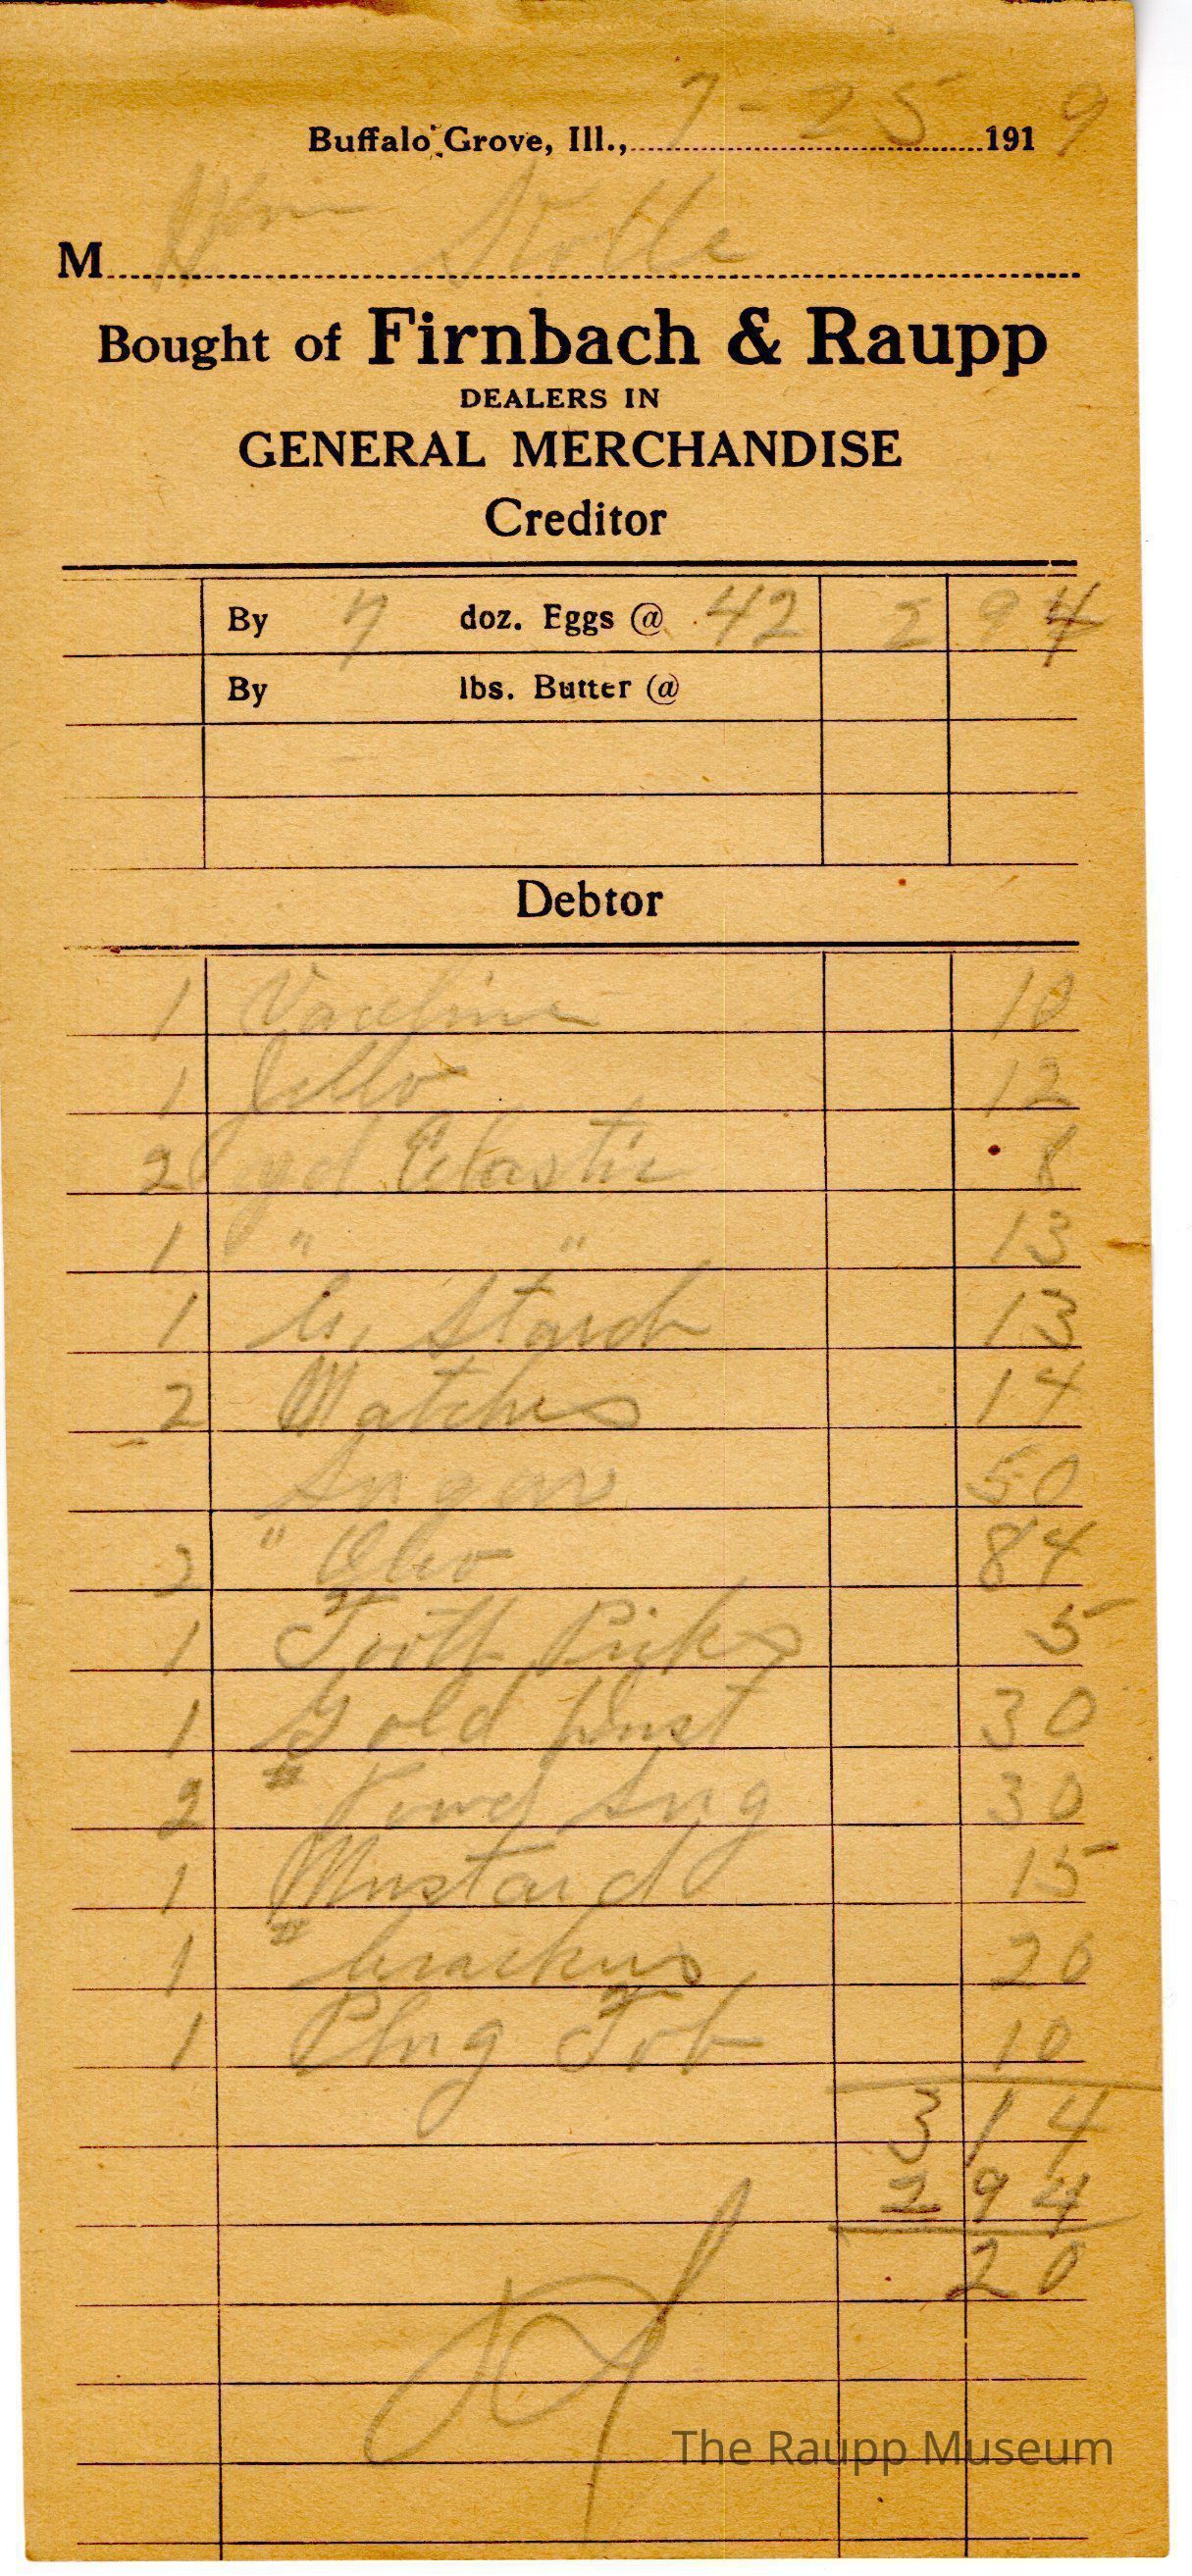 Buffalo Grove, Ill., 7-25 1919
M Wm Stolle
Bought of Firnbach & Raupp
DEALERS IN
GENERAL MERCHANDISE
Creditor
By 7 doz. Eggs @ 42 2 94
By lbs. Butter @
Debtor
1 Vaceline 10
1 Jello 12
2 yd Elastic 8
1 " " 13
1 C. Starch 13
2 Matches 14
Sugar 50
2 " Oleo 84
1 Tooth Picks 5
1 Gold Dust 30
2 # Powd Sug 30
1 Mustard 15
1 # Crackers 20
1 Plug Tob 10
3 14
2 94
20
The Raupp Museum